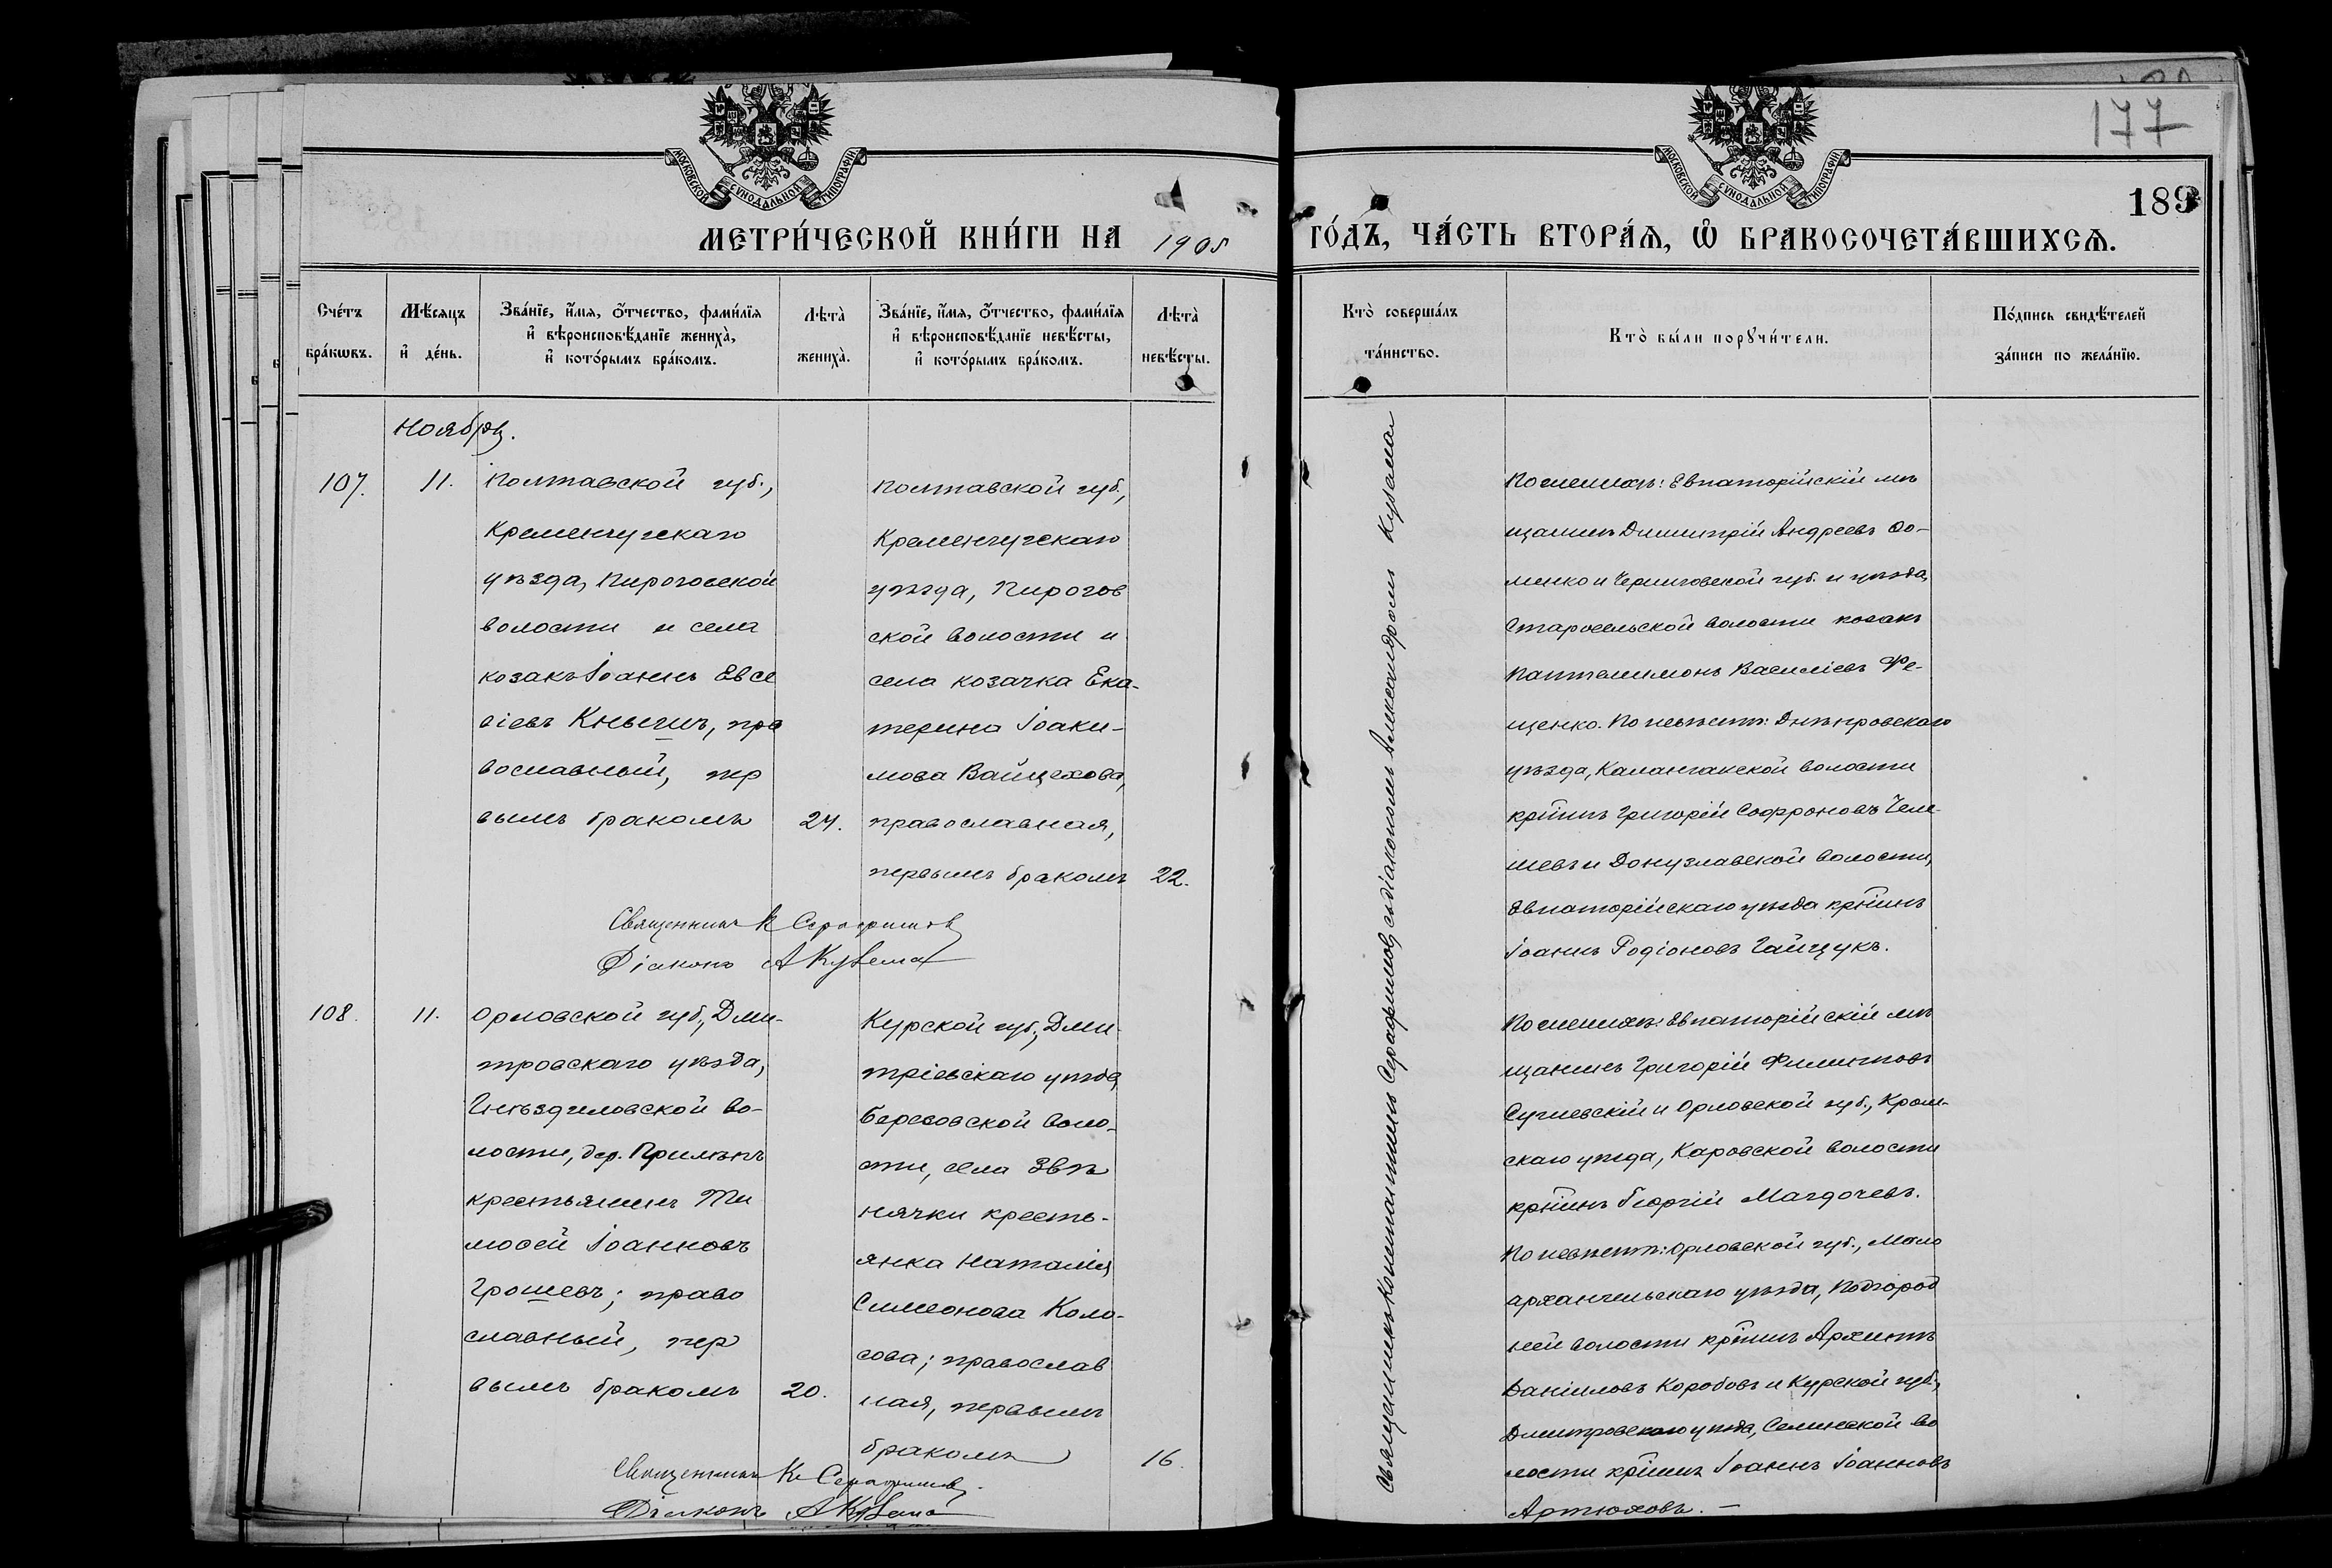 177
189
МОСКОВСКОЙ СѴНОДАЛЬНОЙ ТИПОГРАФІИ
МОСКОВСКОЙ СѴНОДАЛЬНОЙ ТИПОГРАФІИ
МЕТРИ́ЧЕСКОЙ КНИ́ГИ НА 1905 ГО́ДЪ, ЧА́СТЬ ВТОРА́Ѧ, Ѽ БРАКОСОЧЕТА́ВШИХСѦ.
Сче́тъ бра́кѡвъ.
Мѣ́сяцъ и҆ де́нь.
Зва́нїе, и҆́мя, ѻ҆́тчество, фами́лїя
и҆ вѣроисповѣ́данїе жениха̀,
и҆ кото́рымъ бра́комъ.
Лѣта̀ жениха̀.
Зва́нїе, и҆́мя, ѻ҆́тчество, фами́лїя
и҆ вѣроисповѣ́данїе невѣ́сты,
и҆ кото́рымъ бра́комъ.
Лѣта̀ невѣ́сты.
Кто̀ соверша́лъ
та́инство.
Кто̀ бы́ли порꙋчи́тели.
По́дпись свидѣ́телей
за́писи по жела́нїю.
Ноябрь.
107.
11.
Полтавской губ.,
Кременчугскаго
уѣзда, Пироговской
волости и села
козакъ Іоаннъ Евсе
віевъ Кнышъ, пра
вославный, пер
вымъ бракомъ
24.
Полтавской губ.,
Кременчугскаго
уѣзда, Пирогов
ской волости и
села козачка Ека-
терина Іоаки-
мова Вайцехова,
православная,
первымъ бракомъ
22.
Священникъ К Серафимовъ
Діаконъ А Кузема
Священникъ Константинъ Серафимовъ съ діакономъ Александромъ Кузема
По женихѣ: Евпаторійскій мѣ
щанинъ Димитрій Андреевъ Фо-
менко и Черниговской губ. и уѣзда,
Старосельской волости козакъ
Пантелимонъ Василіевъ Фе-
щенко. По невѣстѣ: Днѣпровскаго
уѣзда, Каланчакской волости
крнинъ Григорій Софроновъ Чем-
шевъ и Донузлавской волости,
Евпаторійскаго уѣзда крнинъ
Іоаннъ Родіоновъ Гайщукъ.
108.
11.
Орловской губ., Дми-
тровскаго уѣзда,
Гнѣздиловской во-
лости, дер. Прилѣпъ
крестьянинъ Ти
мофей Іоанновъ
Грошевъ; право
славный, пер
вымъ бракомъ
20.
Курской губ., Дми-
тріевскаго уѣзда,
Березовской воло-
сти, села Звѣ
нячки кресть-
янка Наталія
Симеонова Коло-
сова; православ
ная, первымъ
бракомъ
16.
Священникъ К Серафимовъ.
Діаконъ А Кузема
По женихѣ: Евпаторійскій мѣ
щанинъ Григорій Филипповъ
и Орловской губ., Кром-
скаго уѣзда, Каровской волости
крнинъ Георгій Магдочевъ.
По невѣстѣ: Орловской губ., Мало
архангельскаго уѣзда, Подгород
ней волости крнинъ Архиппъ
Даніиловъ Коробовъ и Курской губ.,
Дмитровскаго уѣзда, во
лости крнинъ Іоаннъ Іоанновъ
Артюховъ. —